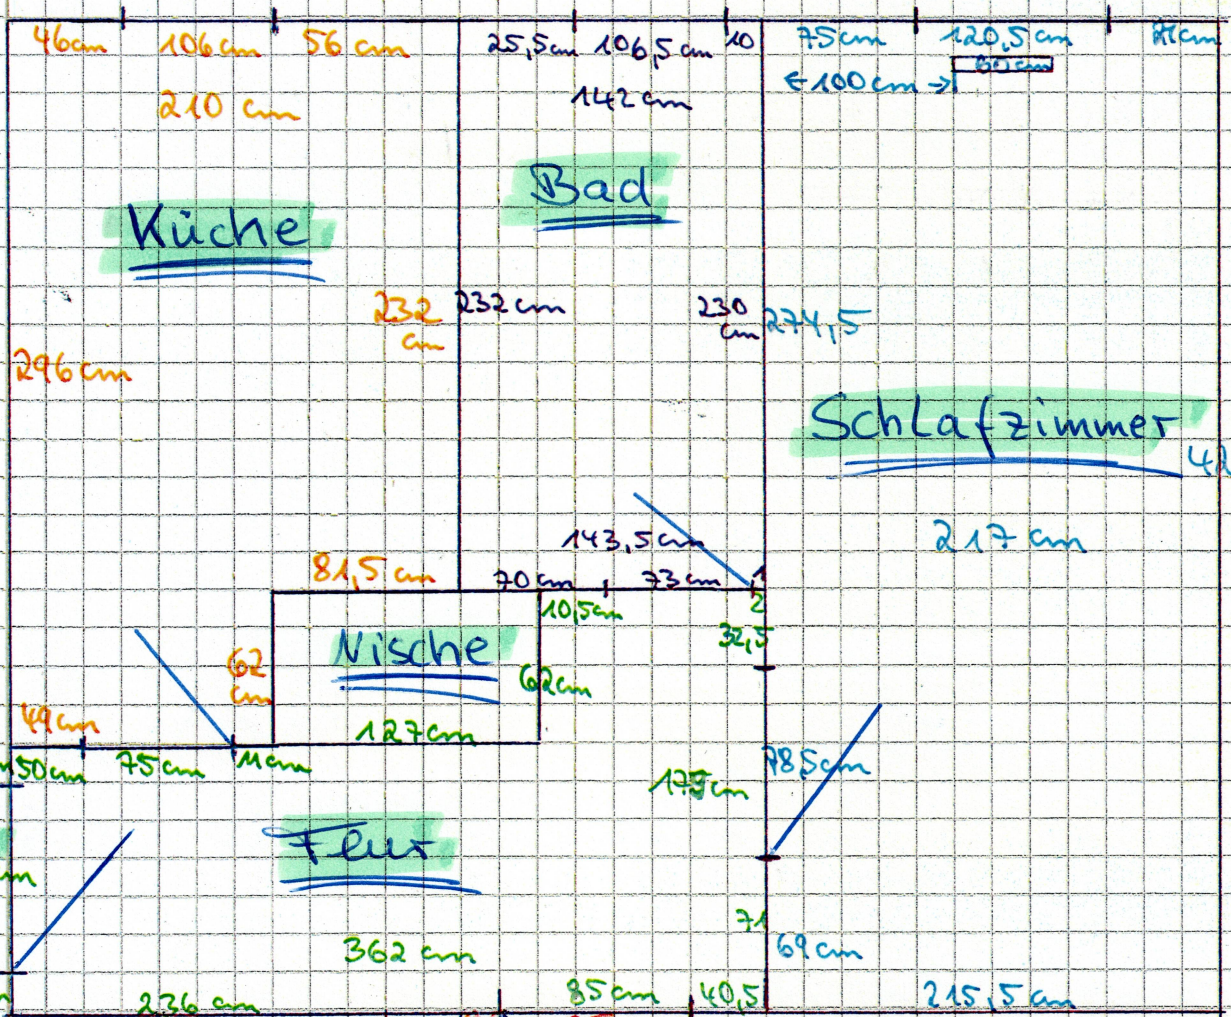 46cm 106cm 56 cm 25,5cm 106,5cm 10 75cm 120,5cm 21cm
60cm
←100cm→
210 cm 142 cm
Bad
Küche
232 cm 232 cm 230 cm 274,5
296 cm
Schlafzimmer
42
217 cm
143,5cm
81,5 cm 70cm 73cm 1
10,5cm 2
32,5
Nische
62 cm 62cm
49cm 127cm
50cm 75cm 11cm 78,5cm
Flur
m
71
362 cm 69cm
236 cm 85cm 40,5 215,5 cm